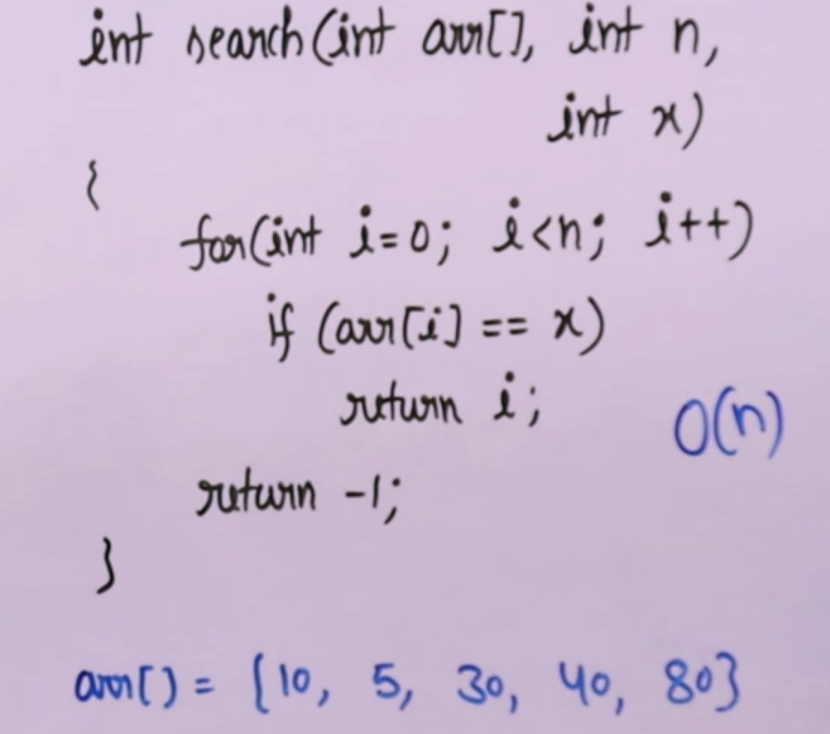 int search(int arr[], int n,
int x)
{
for(int i=0; i<n; i++)
if (arr[i] == x)
return i;
O(n)
return -1;
}
arr[] = {10, 5, 30, 40, 80}